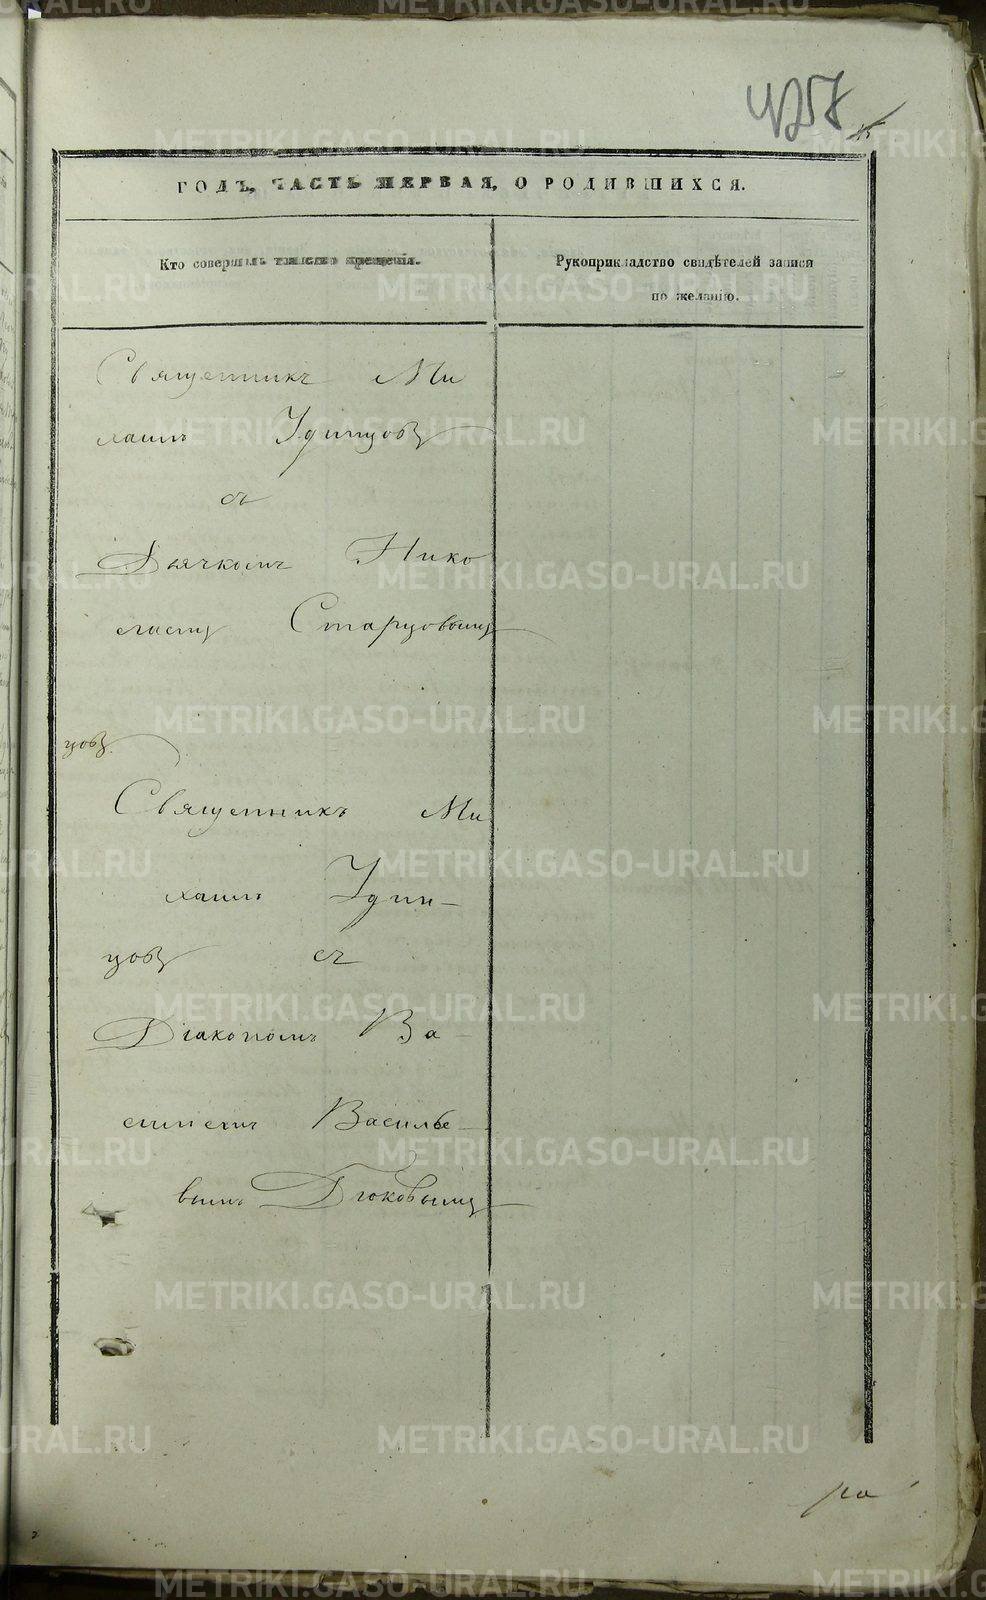 257
ГОДЪ, ЧАСТЬ ПЕРВАЯ, О РОДИВШИХСЯ.
Кто совершалъ таинство крещенія.
Рукоприкладство свидѣтелей записи
по желанію.
Священникъ Ми
хаилъ Удинцовъ
съ
Дьячкомъ Нико
лаемъ Старцовымъ
цовъ
Священникъ Ми
хаилъ Удин-
цовъ съ
Діакономъ Ва-
силіемъ Василье-
вымъ Дюковымъ
METRIKI.GASO-URAL.RU